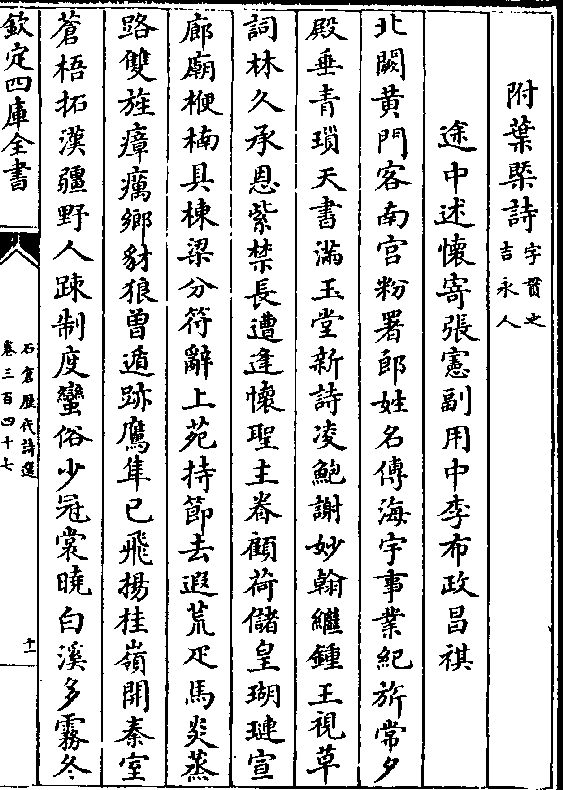 附葉㮚詩字貫之
吉永人
途中述懷寄張憲副用中李布政昌祺
北闕黃門客南宮粉署郎姓名傳海宇事業紀旂常夕
殿垂青瑣天書滿玉堂新詩凌鮑謝妙翰繼鍾王視草
詞林久承恩紫禁長遭逢懷聖主眷顧荷儲皇瑚璉宣
廊廟楩楠具棟梁分符辭上苑持節去遐荒疋馬炎蒸
路雙旌瘴癘鄉豺狼曽遁跡鷹隼已飛揚桂嶺開秦室
蒼梧拓漢疆野人踈制度蠻俗少冠裳曉白溪多霧冬
欽定四庫全書
石倉歷代詩選
卷三百四十七
十一